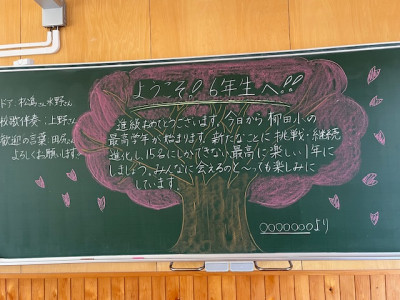 ドア：松島さん水野さん
校歌伴奏：上野さん
歓迎の言葉：田尻さん
よろしくお願いします。
ようこそ!!6年生へ!!
進級おめでとうございます。今日から柳田小の
最高学年が始まります。新たなことに挑戦・継続
進化し、15名にしかできない最高に楽しい1年に
しましょう。みんなに会えるのと～っても楽しみに
しています。
○○○○○○○より